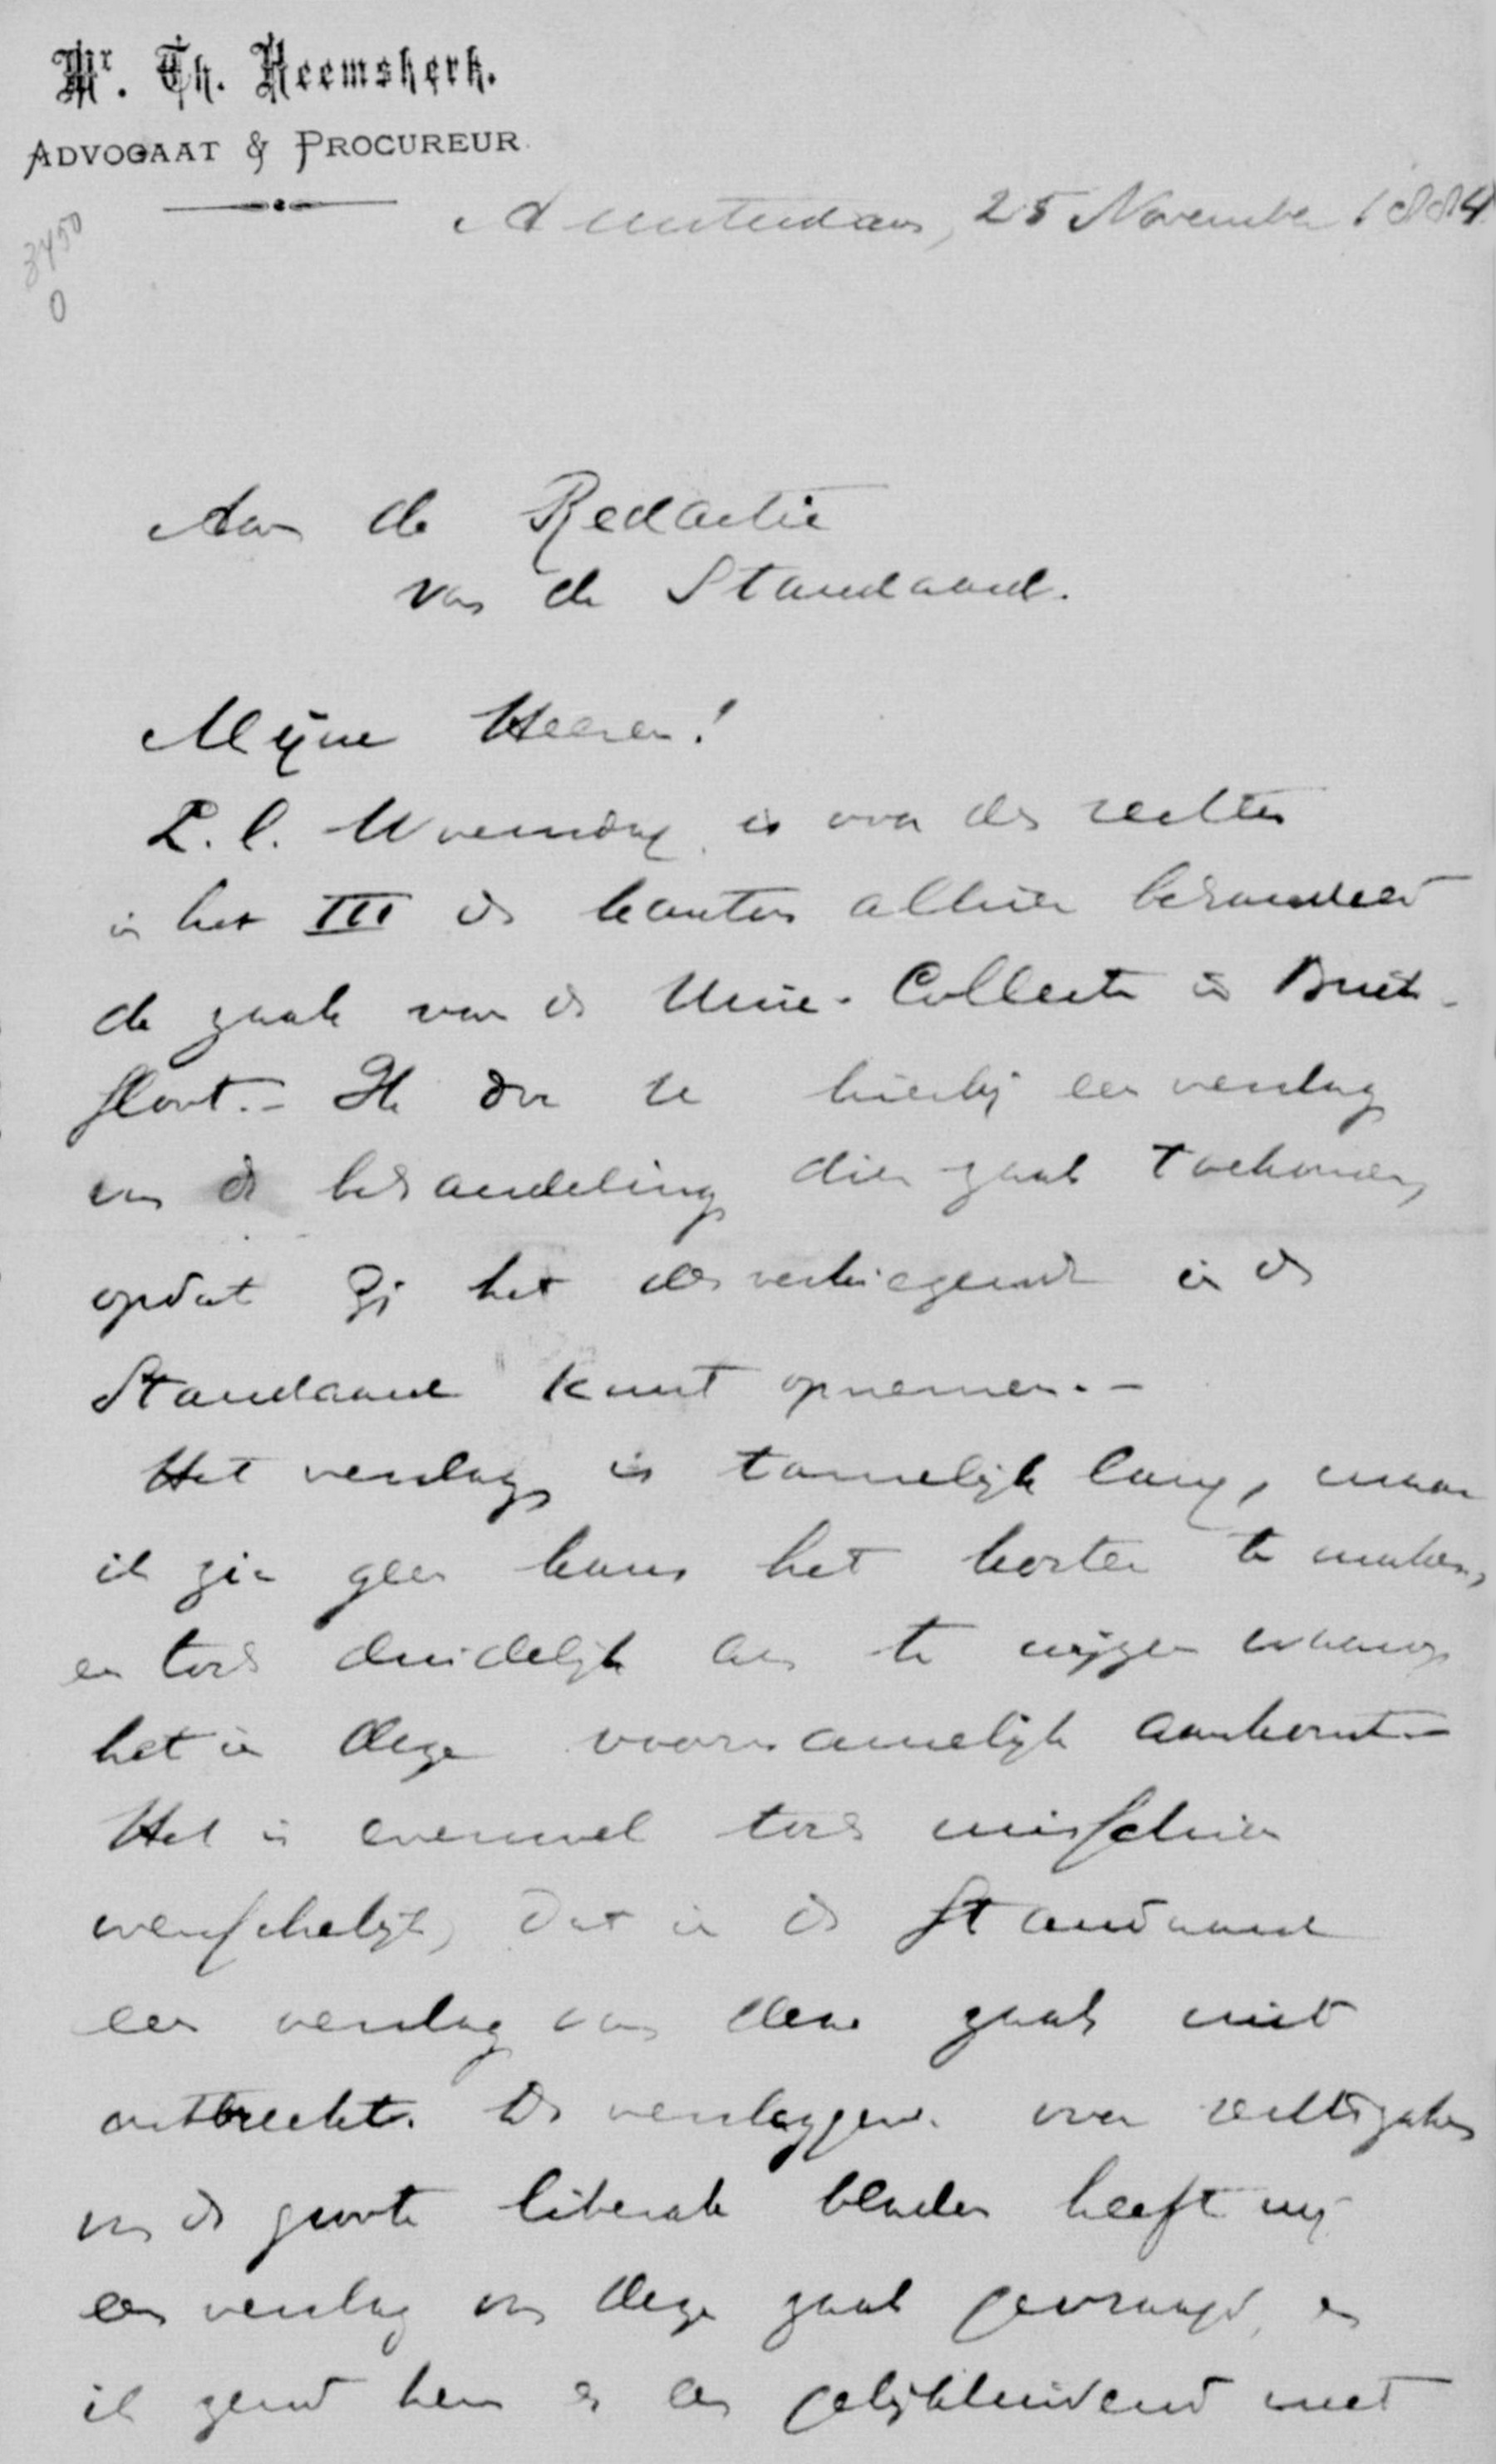 Mr. Th. Heemskerk.
ADVOCAAT & PROCUREUR.
3450
0
Amsterdam, 25 November 1884
Aan de Redactie
van de Standaard.
Mijne Heeren!
L.l. Woensdag is voor den rechter
in het III de kanton alhier behandeld
de zaak van de Unie-Collecte in Buik-
sloot. - Ik doe U hierbij een verslag
van de behandeling dier zaak toekomen,
opdat Gij het desverkiezende in de
Standaard kunt opnemen. -
Het verslag is tamelijk lang, maar
ik zie geen kans het korter te maken,
en toch duidelijk aan te wijzen waarop
het in deze voornamelijk aankomt. -
Het is evenwel toch misschien
wenschelijk, dat in de Standaard
een verslag van deze zaak niet
ontbreekt. De verslaggever over rechtszaken
van de groote liberale bladen heeft mij
een verslag van deze zaak gevraagd, en
ik zend hem er een gelijkluidend met